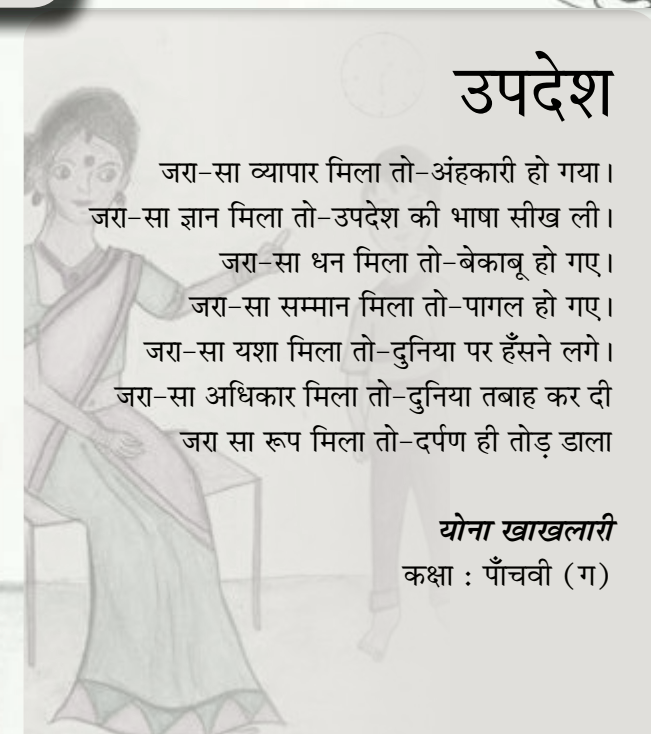 उपदेश
जरा-सा व्यापार मिला तो-अंहकारी हो गया।
जरा-सा ज्ञान मिला तो-उपदेश की भाषा सीख ली।
जरा-सा धन मिला तो-बेकाबू हो गए।
जरा-सा सम्मान मिला तो-पागल हो गए।
जरा-सा यशा मिला तो-दुनिया पर हँसने लगे।
जरा-सा अधिकार मिला तो-दुनिया तबाह कर दी
जरा सा रूप मिला तो-दर्पण ही तोड़ डाला
योना खाखलारी
कक्षा : पाँचवी (ग)